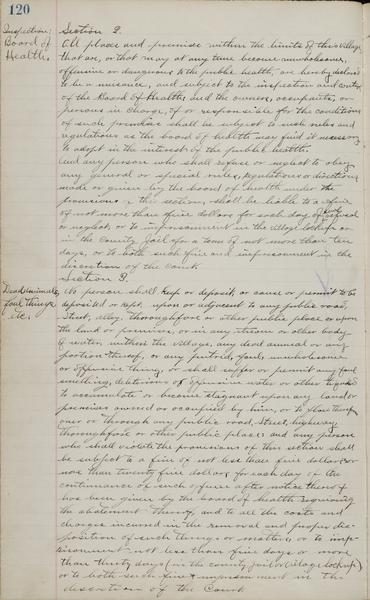 120
Inspection:
Board of
Health.
Section 2.
All places and premises within the limits of this village
that are, or that may at any time become unwholesome,
offensive or dangerous to the public health, are hereby declared
to be a nuisance, and subject to the inspection and control
of the Board of Health; and the owners, occupants, or
persons in charge of, or responsible for the conditions
of such premises shall be subject to such rules and
regulations as the board of health may find it necessary
to adopt in the interest of the public health.
And any person who shall refuse or neglect to obey
any general or special rules, regulations or directions
made or given by the board of health under the
provisions of this section, shall be liable to a fine
of not more than five dollars for each day of such refusal
or neglect, or to imprisonment in the village lockup or
in the County Jail for a term of not more than ten
days, or to both such fine and imprisonment in the
discretion of the Court
Section 3.
Dead animals,
foul things
etc.
No person shall keep or deposit, or cause or permit to be
deposited or kept, upon or adjacent to any public road,
Street, alley, thoroughfare or other public place or upon
the land or premises, or in any stream or other body
of water, within the village, any dead animal or any
portion thereof, or any putrid, foul, unwholesome
or offensive thing, or shall suffer or permit any foul
smelling, deleterious or offensive water or other liquid
to accumulate or become stagnant upon any land or
premises owned or occupied by him, or to flow therefrom
over or through any public road, Street, highway,
thoroughfare or other public place; and any person
who shall violate the provisions of this section shall
be subject to a fine of not less than five dollars or
more than twenty five dollars for each day of the
continuance of such offence after notice thereof
has been given by the board of health requiring
the abatement thereof, and to all the costs and
charges incurred in the removal and proper dis-
position of such things or matter, or to imp-
risonment not less than five days or more
than thirty days (in the county jail or village lockup)
or to both such fine & imprisonment in the
discretion of the Court